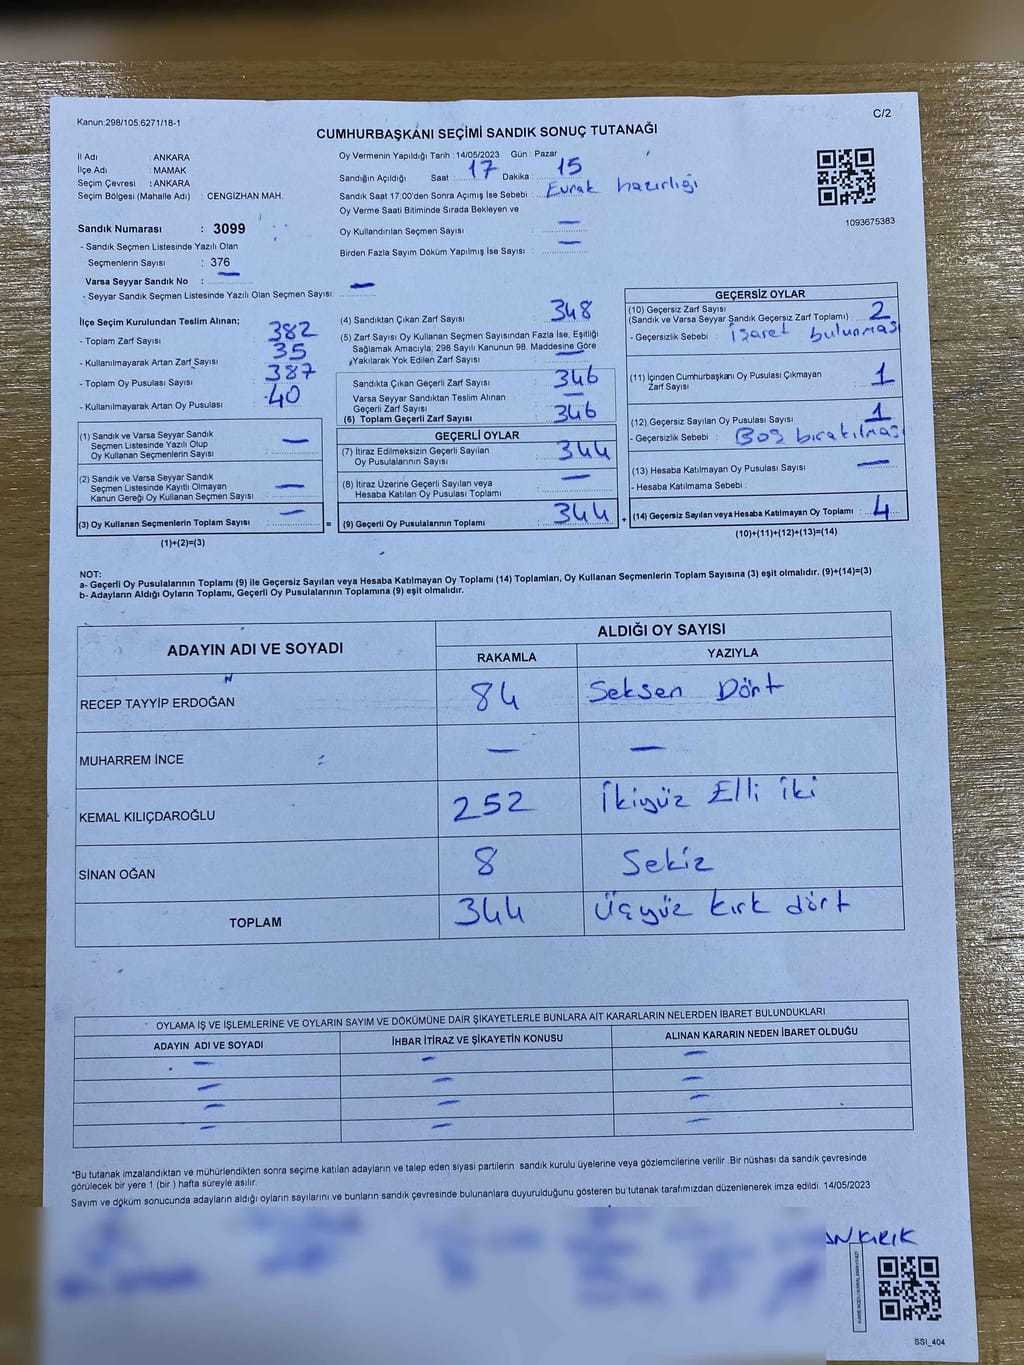 Kanun:298/105,6271/18-1
C/2
CUMHURBAŞKANI SEÇİMİ SANDIK SONUÇ TUTANAĞI
İl Adı : ANKARA
İlçe Adı : MAMAK
Seçim Çevresi : ANKARA
Seçim Bölgesi (Mahalle Adı) : CENGİZHAN MAH.
Oy Vermenin Yapıldığı Tarih : 14/05/2023 Gün : Pazar
Sandığın Açıldığı Saat : 17 Dakika : 15
Sandık Saat 17:00'den Sonra Açımış İse Sebebi : Evrak hazırlığı
Oy Verme Saati Bitiminde Sırada Bekleyen ve
Oy Kullandırılan Seçmen Sayısı : —
Birden Fazla Sayım Döküm Yapılmış İse Sayısı : —
1093675383
Sandık Numarası : 3099
- Sandık Seçmen Listesinde Yazılı Olan
Seçmenlerin Sayısı : 376
Varsa Seyyar Sandık No : —
- Seyyar Sandık Seçmen Listesinde Yazılı Olan Seçmen Sayısı: —
İlçe Seçim Kurulundan Teslim Alınan;
- Toplam Zarf Sayısı : 382
- Kullanılmayarak Artan Zarf Sayısı : 35
- Toplam Oy Pusulası Sayısı : 387
- Kullanılmayarak Artan Oy Pusulası : 40
(1) Sandık ve Varsa Seyyar Sandık
Seçmen Listesinde Yazılı Olup
Oy Kullanan Seçmenlerin Sayısı : —
(2) Sandık ve Varsa Seyyar Sandık
Seçmen Listesinde Kayıtlı Olmayan
Kanun Gereği Oy Kullanan Seçmen Sayısı : —
(3) Oy Kullanan Seçmenlerin Toplam Sayısı : — =
(1)+(2)=(3)
(4) Sandıktan Çıkan Zarf Sayısı : 348
(5) Zarf Sayısı Oy Kullanan Seçmen Sayısından Fazla İse, Eşitliği
Sağlamak Amacıyla; 298 Sayılı Kanunun 98. Maddesine Göre
Yakılarak Yok Edilen Zarf Sayısı : —
Sandıkta Çıkan Geçerli Zarf Sayısı : 346
Varsa Seyyar Sandıktan Teslim Alınan
Geçerli Zarf Sayısı : —
(6) Toplam Geçerli Zarf Sayısı : 346
GEÇERLİ OYLAR
(7) İtiraz Edilmeksizin Geçerli Sayılan
Oy Pusulalarının Sayısı : 344
(8) İtiraz Üzerine Geçerli Sayılan veya
Hesaba Katılan Oy Pusulası Toplamı : —
(9) Geçerli Oy Pusulalarının Toplamı : 344 +
GEÇERSİZ OYLAR
(10) Geçersiz Zarf Sayısı
(Sandık ve Varsa Seyyar Sandık Geçersiz Zarf Toplamı) : 2
- Geçersizlik Sebebi : İşaret bulunması
(11) İçinden Cumhurbaşkanı Oy Pusulası Çıkmayan
Zarf Sayısı : 1
(12) Geçersiz Sayılan Oy Pusulası Sayısı : 1
- Geçersizlik Sebebi : Boş bırakılması
(13) Hesaba Katılmayan Oy Pusulası Sayısı : —
- Hesaba Katılmama Sebebi :
(14) Geçersiz Sayılan veya Hesaba Katılmayan Oy Toplamı : 4
(10)+(11)+(12)+(13)=(14)
NOT:
a- Geçerli Oy Pusulalarının Toplamı (9) ile Geçersiz Sayılan veya Hesaba Katılmayan Oy Toplamı (14) Toplamları, Oy Kullanan Seçmenlerin Toplam Sayısına (3) eşit olmalıdır. (9)+(14)=(3)
b- Adayların Aldığı Oyların Toplamı, Geçerli Oy Pusulalarının Toplamına (9) eşit olmalıdır.
ADAYIN ADI VE SOYADI
ALDIĞI OY SAYISI
RAKAMLA YAZIYLA
RECEP TAYYİP ERDOĞAN 84 Seksen Dört
MUHARREM İNCE — —
KEMAL KILIÇDAROĞLU 252 İkiyüz Elli iki
SİNAN OĞAN 8 Sekiz
TOPLAM 344 Üçyüz kırk dört
OYLAMA İŞ VE İŞLEMLERİNE VE OYLARIN SAYIM VE DÖKÜMÜNE DAİR ŞİKAYETLERLE BUNLARA AİT KARARLARIN NELERDEN İBARET BULUNDUKLARI
ADAYIN ADI VE SOYADI İHBAR İTİRAZ VE ŞİKAYETİN KONUSU ALINAN KARARIN NEDEN İBARET OLDUĞU
— — —
— — —
— — —
— — —
*Bu tutanak imzalandıktan ve mühürlendikten sonra seçime katılan adayların ve talep eden siyasi partilerin sandık kurulu üyelerine veya gözlemcilerine verilir .Bir nüshası da sandık çevresinde
görülecek bir yere 1 (bir ) hafta süreyle asılır.
Sayım ve döküm sonucunda adayların aldığı oyların sayılarını ve bunların sandık çevresinde bulunanlara duyurulduğunu gösteren bu tutanak tarafımızdan düzenlenerek imza edildi. 14/05/2023
SSI_404